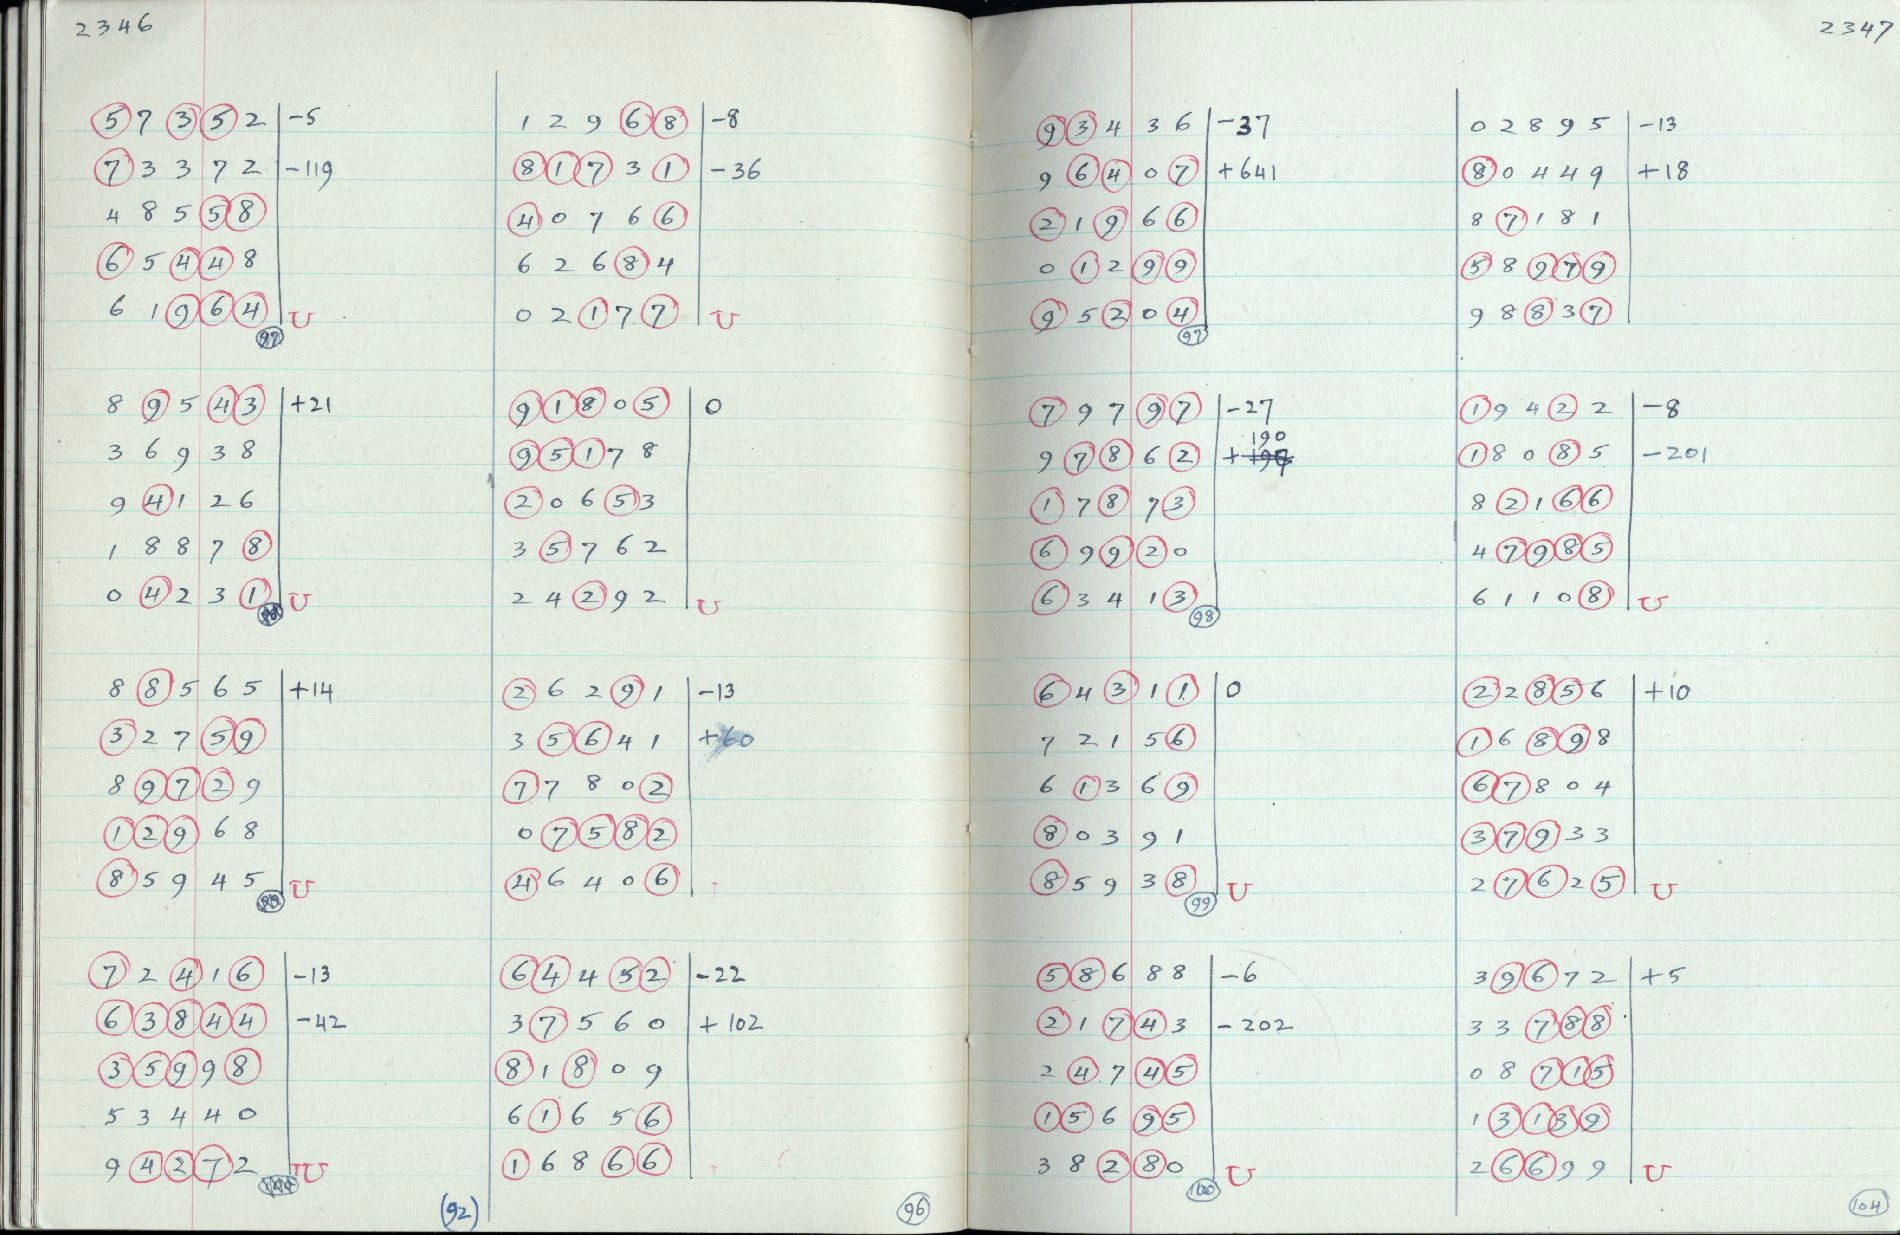 2346
5 7 3 5 2 -5
7 3 3 7 2 -119
4 8 5 5 8
6 5 4 4 8
6 1 9 6 4 U
97
8 9 5 4 3 +21
3 6 9 3 8
9 4 1 2 6
1 8 8 7 8
0 4 2 3 1 U
8 8 5 6 5 +14
3 2 7 5 9
8 9 7 2 9
1 2 9 6 8
8 5 9 4 5 U
7 2 4 1 6 -13
6 3 8 4 4 -42
3 5 9 9 8
5 3 4 4 0
9 4 2 7 2 U
(92)
1 2 9 6 8 -8
8 1 7 3 1 -36
4 0 7 6 6
6 2 6 8 4
0 2 1 7 7 U
9 1 8 0 5 0
9 5 1 7 8
2 0 6 5 3
3 5 7 6 2
2 4 2 9 2 U
2 6 2 9 1 -13
3 5 6 4 1 +60
7 7 8 0 2
0 7 5 8 2
4 6 4 0 6
6 4 4 5 2 -22
3 7 5 6 0 +102
8 1 8 0 9
6 1 6 5 6
1 6 8 6 6
96
2347
9 3 4 3 6 -37
9 6 4 0 7 +641
2 1 9 6 6
0 1 2 9 9
9 5 2 0 4
97
7 9 7 9 7 -27
190
9 7 8 6 2 +
1 7 8 7 3
6 9 9 2 0
6 3 4 1 3
98
6 4 3 1 1 0
7 2 1 5 6
6 1 3 6 9
8 0 3 9 1
8 5 9 3 8 U
99
5 8 6 8 8 -6
2 1 7 4 3 -202
2 4 7 4 5
1 5 6 9 5
3 8 2 8 0 U
100
0 2 8 9 5 -13
8 0 4 4 9 +18
8 7 1 8 1
5 8 9 7 9
9 8 8 3 7
1 9 4 2 2 -8
1 8 0 8 5 -201
8 2 1 6 6
4 7 9 8 5
6 1 1 0 8 U
2 2 8 5 6 +10
1 6 8 9 8
6 7 8 0 4
3 7 9 3 3
2 7 6 2 5 U
3 9 6 7 2 +5
3 3 7 8 8
0 8 7 1 5
1 3 1 3 9
2 6 6 9 9 U
104